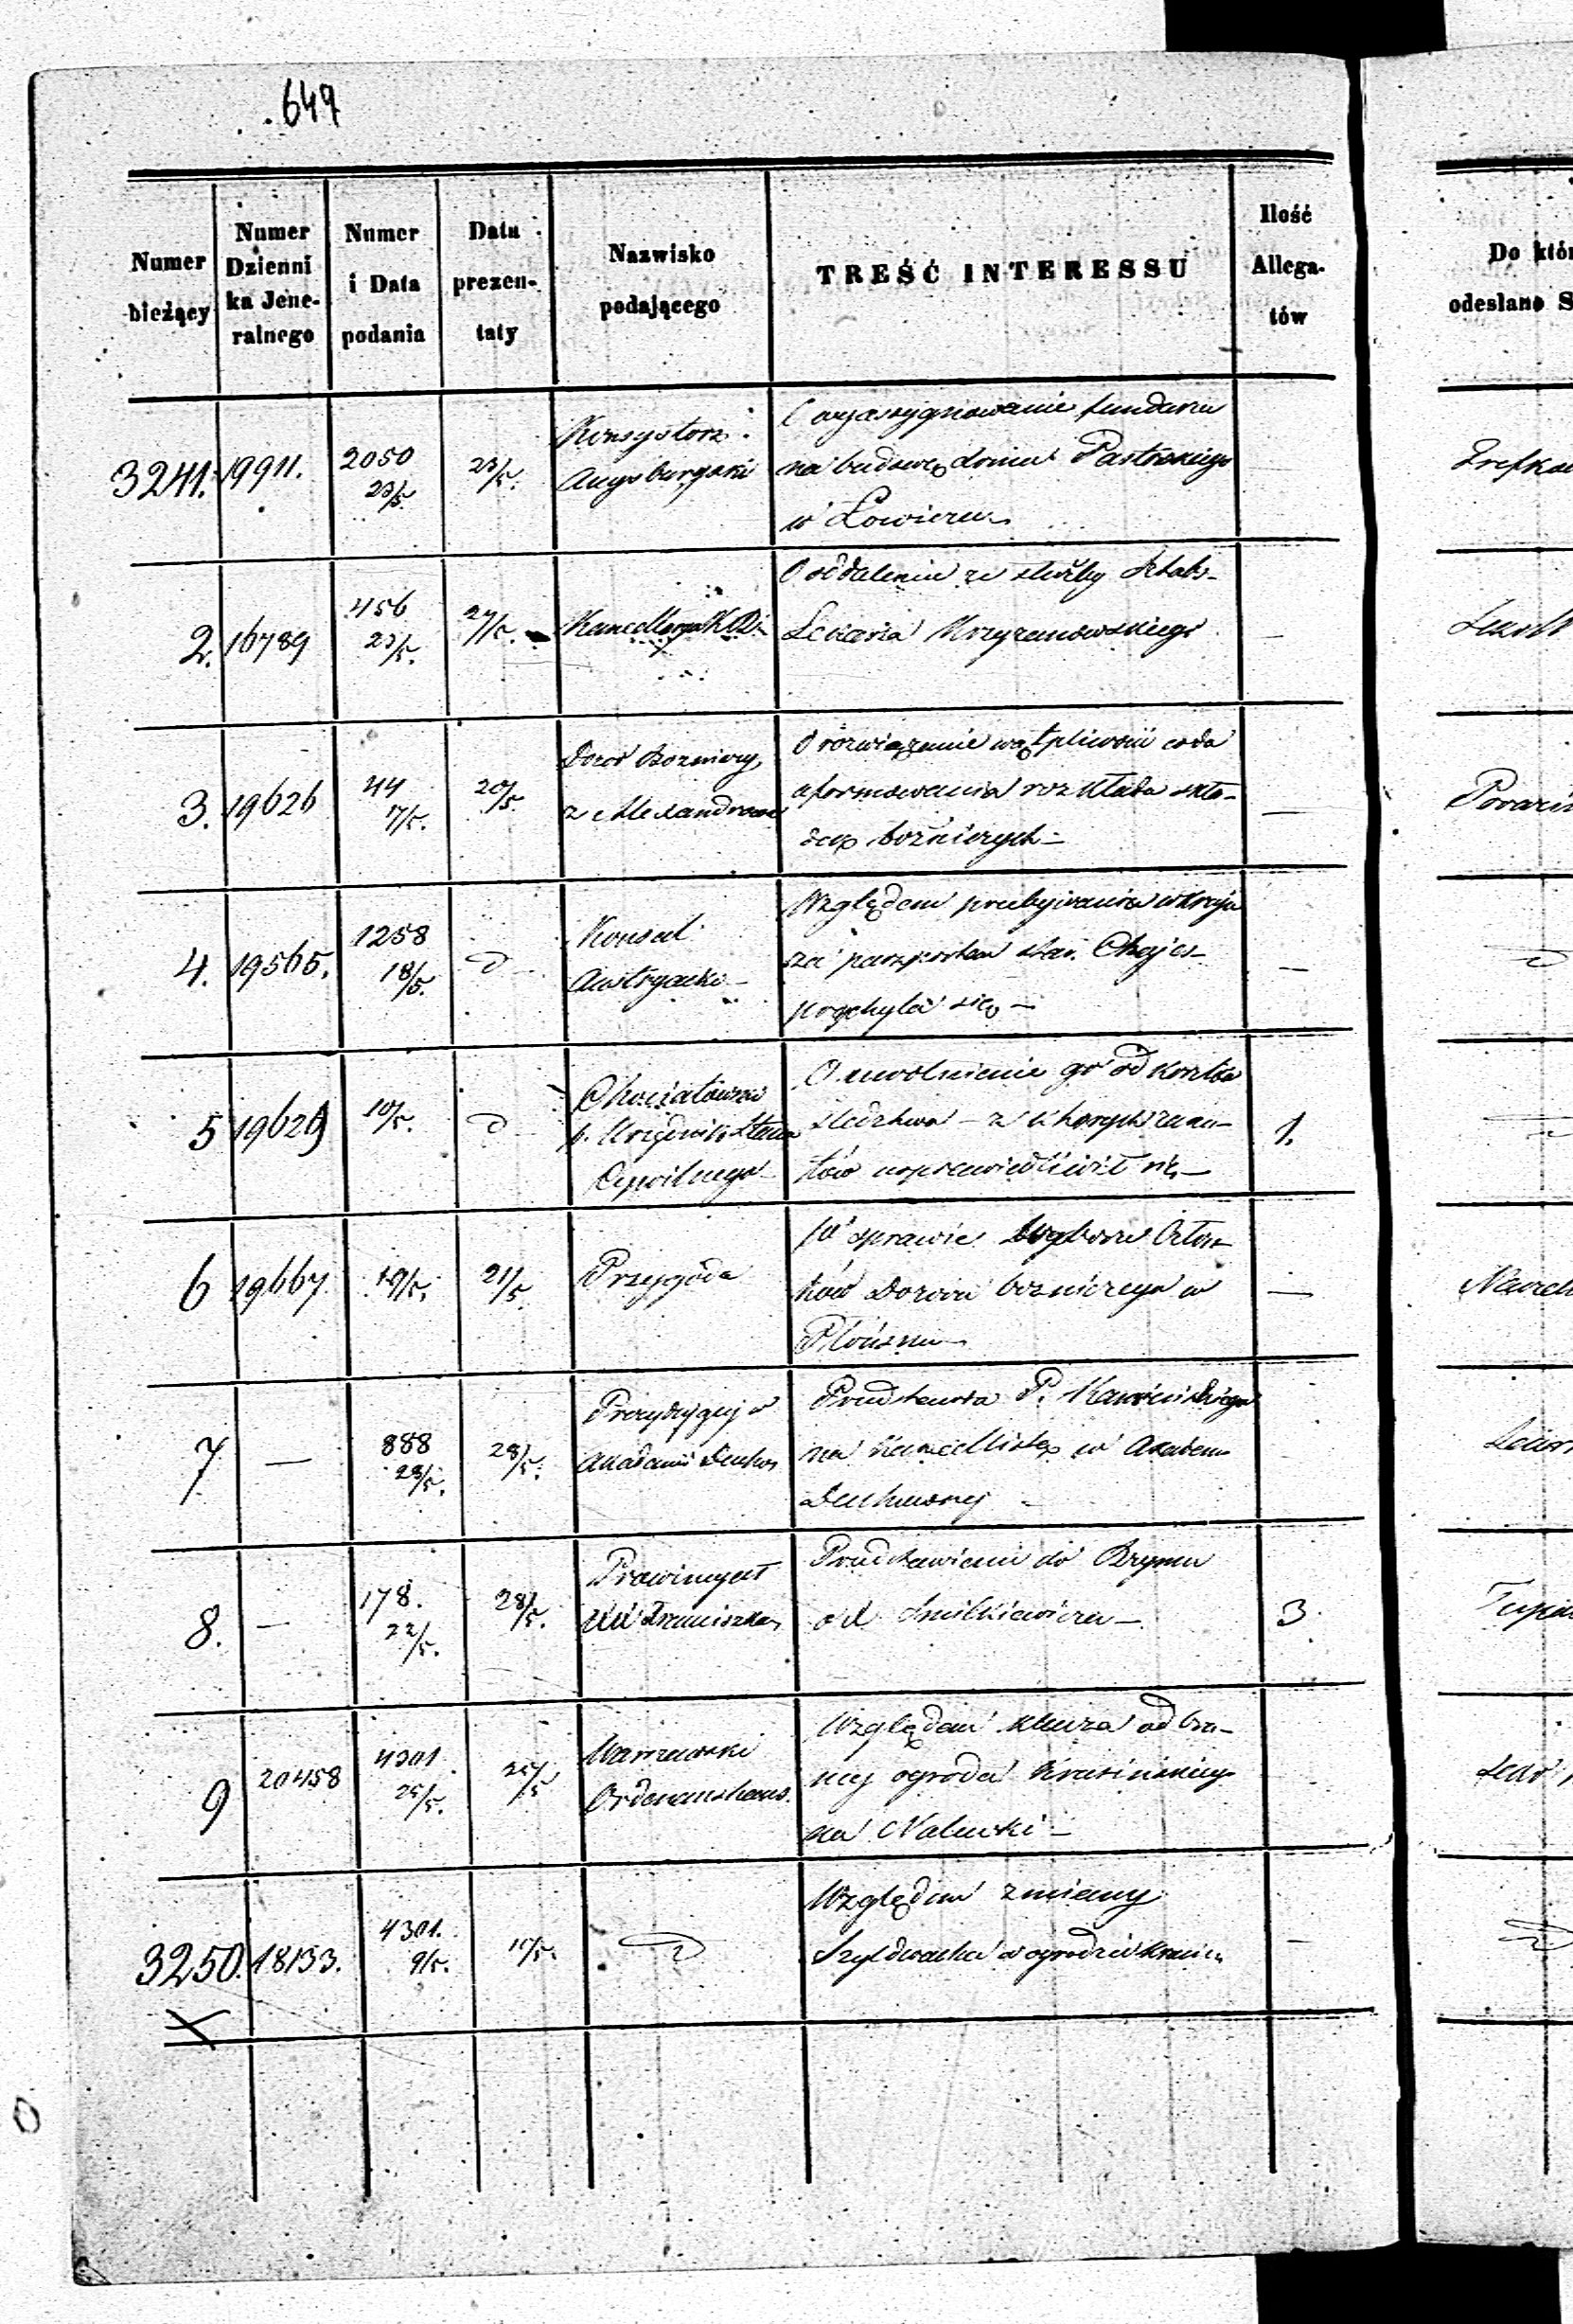 649
Numer bieżący
Numer Dzienni ka Jene- ralnego
Numer i Data podania
Data prezen- taty
Nazwisko podającego
TREŚĆ INTERESSU
Ilość Allega- tów
Do któr
odesłano S
3241. 19911. 2050 23/5. 23/5.
Konsystorz
Augsburgski
O wyassygnowanie funduszu
na budowę domu Pastorskiego
w Łowiczu
2. 16789 456 23/5. 27/5.
Kancellarya
O oddaleniu ze służby Sztabs-
Lekarza Krzyzanowskiego
3. 19626 44 17/5. 20/5
Dozór Bozniczy
z Alexandrowa
O rozwiązanie wątpliwości co do
uformowania rozkładu skła-
dep bożniczych
4. 19565. 1258 18/5. d
Konsul
Austryacki
Względem przebywania w kraju
za paszportem star.
przychyla się
5 19629 10/5. d
p. Urzędnik Stanu
Cywilnego
O uwolnienie go od kosztów
śledztwa – z których zarzu-
tów usprawiedliwił się
1.
6 19667 19/5. 21/5.
Przygoda
W sprawie Wyboru Człon
ków Dozoru bozniczego w
Płońsku
7 — 888 28/5. 28/5.
Prezydujący w
Akademii Duchow
Przedstawia P. Kamińskiego
na Kancellistę w Akadem
Duchownej
8. — 178. 22/5. 28/5.
Prowincyał
XX Franciszka
Przedstawienie do Rzymu
od Smilkiewicza
3
9 20458 4301 25/5. 25/5
Warszawski
Ordonanshaus.
Względem klucza od bra-
my ogrodu Krasińskiego
na Nalewki
3250. 18133. 4301. 9/5. 10/5.
Względem zmiany
Szyldwacha w ogrodzie Krasiń